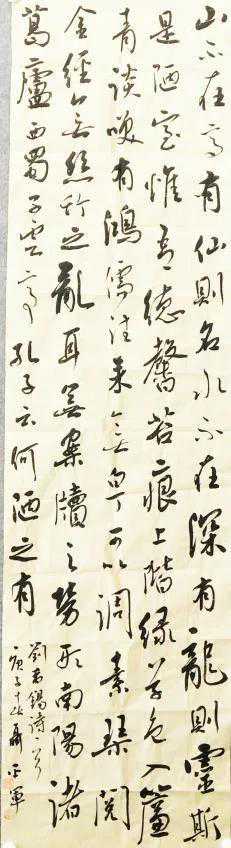 山不在高有仙则名水不在深有龍則靈斯
是陋室惟吾德馨苔痕上階緑草色入簾
青談咲有鴻儒往来無白丁可以調素琴閲
金經無絲竹之亂耳無案牘之勞形南陽諸
葛廬西蜀子雲亭孔子云何陋之有
劉禹錫詩一首
庚子